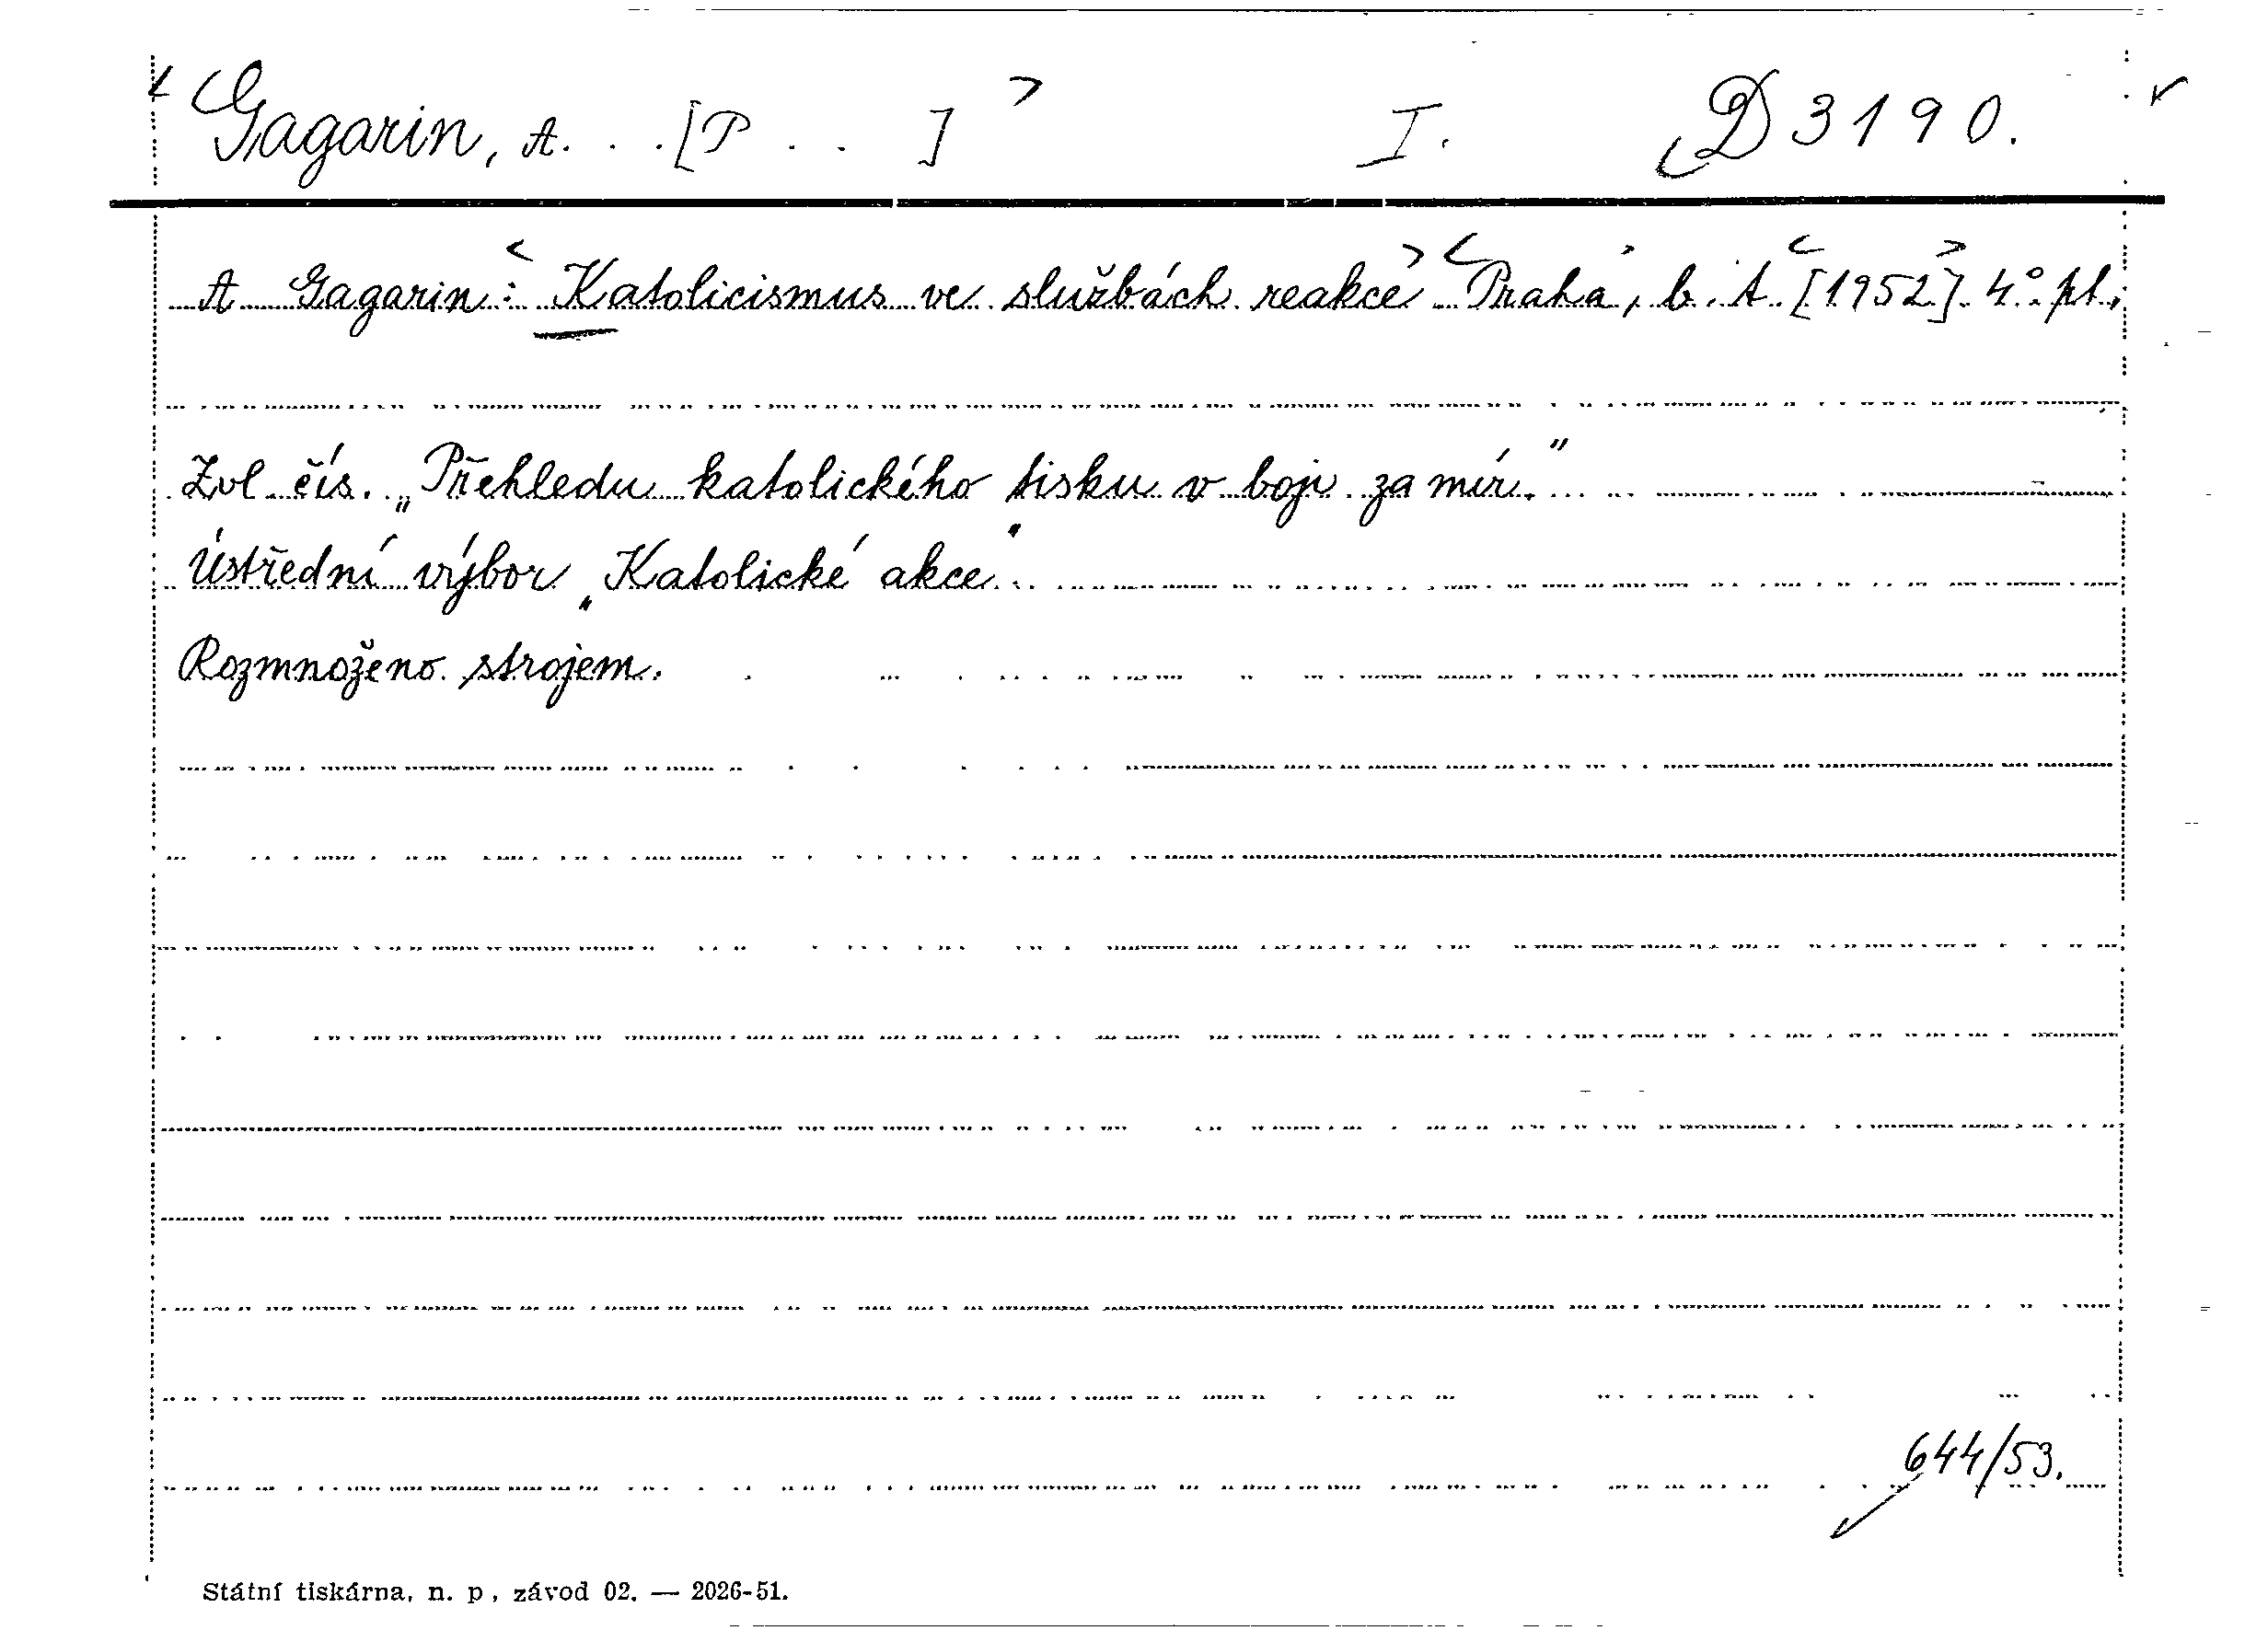 Gagarin, A. . . [P . . ] I. D 3190.
A Gagarin: Katolicismus ve službách reakce Praha, b. t. [1952]. 4° pl.,
Zvl čís. „Přehledu katolického tisku v boji za mír."
Ústřední výbor „Katolické akce".
Rozmnoženo strojem.
644/53.
Státní tiskárna, n. p., závod 02. — 2026-51.